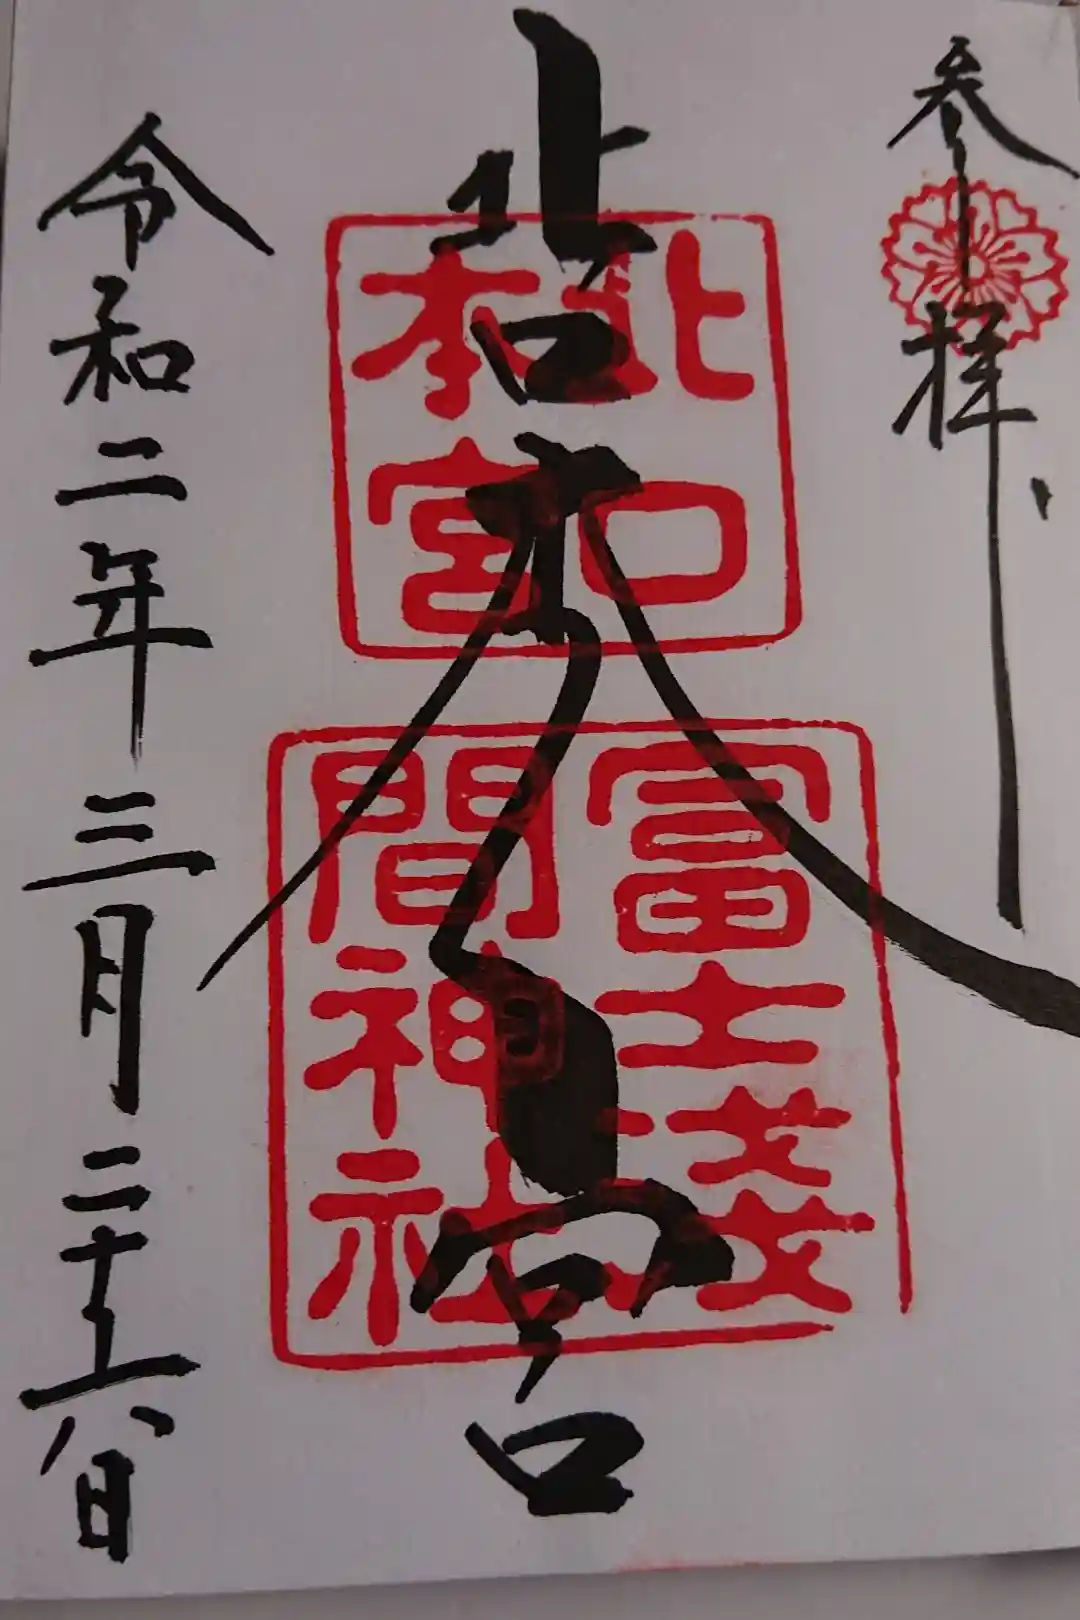 参拝
北口本宮
北口
本宮
冨士淺
間神社
令和二年三月二十六日